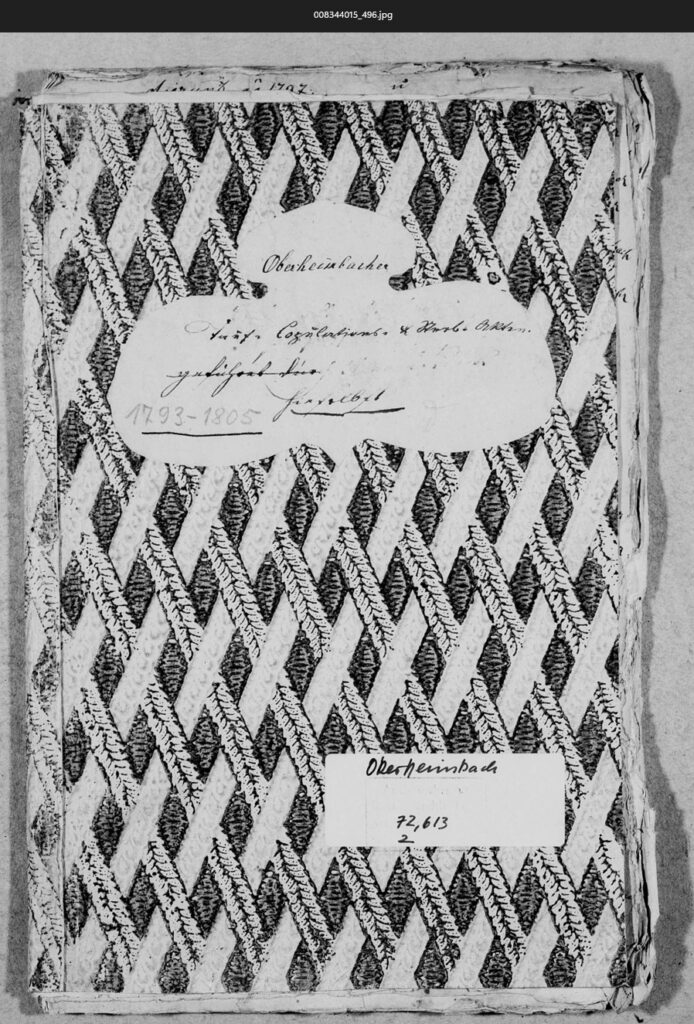 008344015_496.jpg
1797.
Oberheimbacher
Tauf- Copulations- & Sterb- Akten.
geführet durch
hieselbst
1793-1805
Oberheimbach
72,613
2